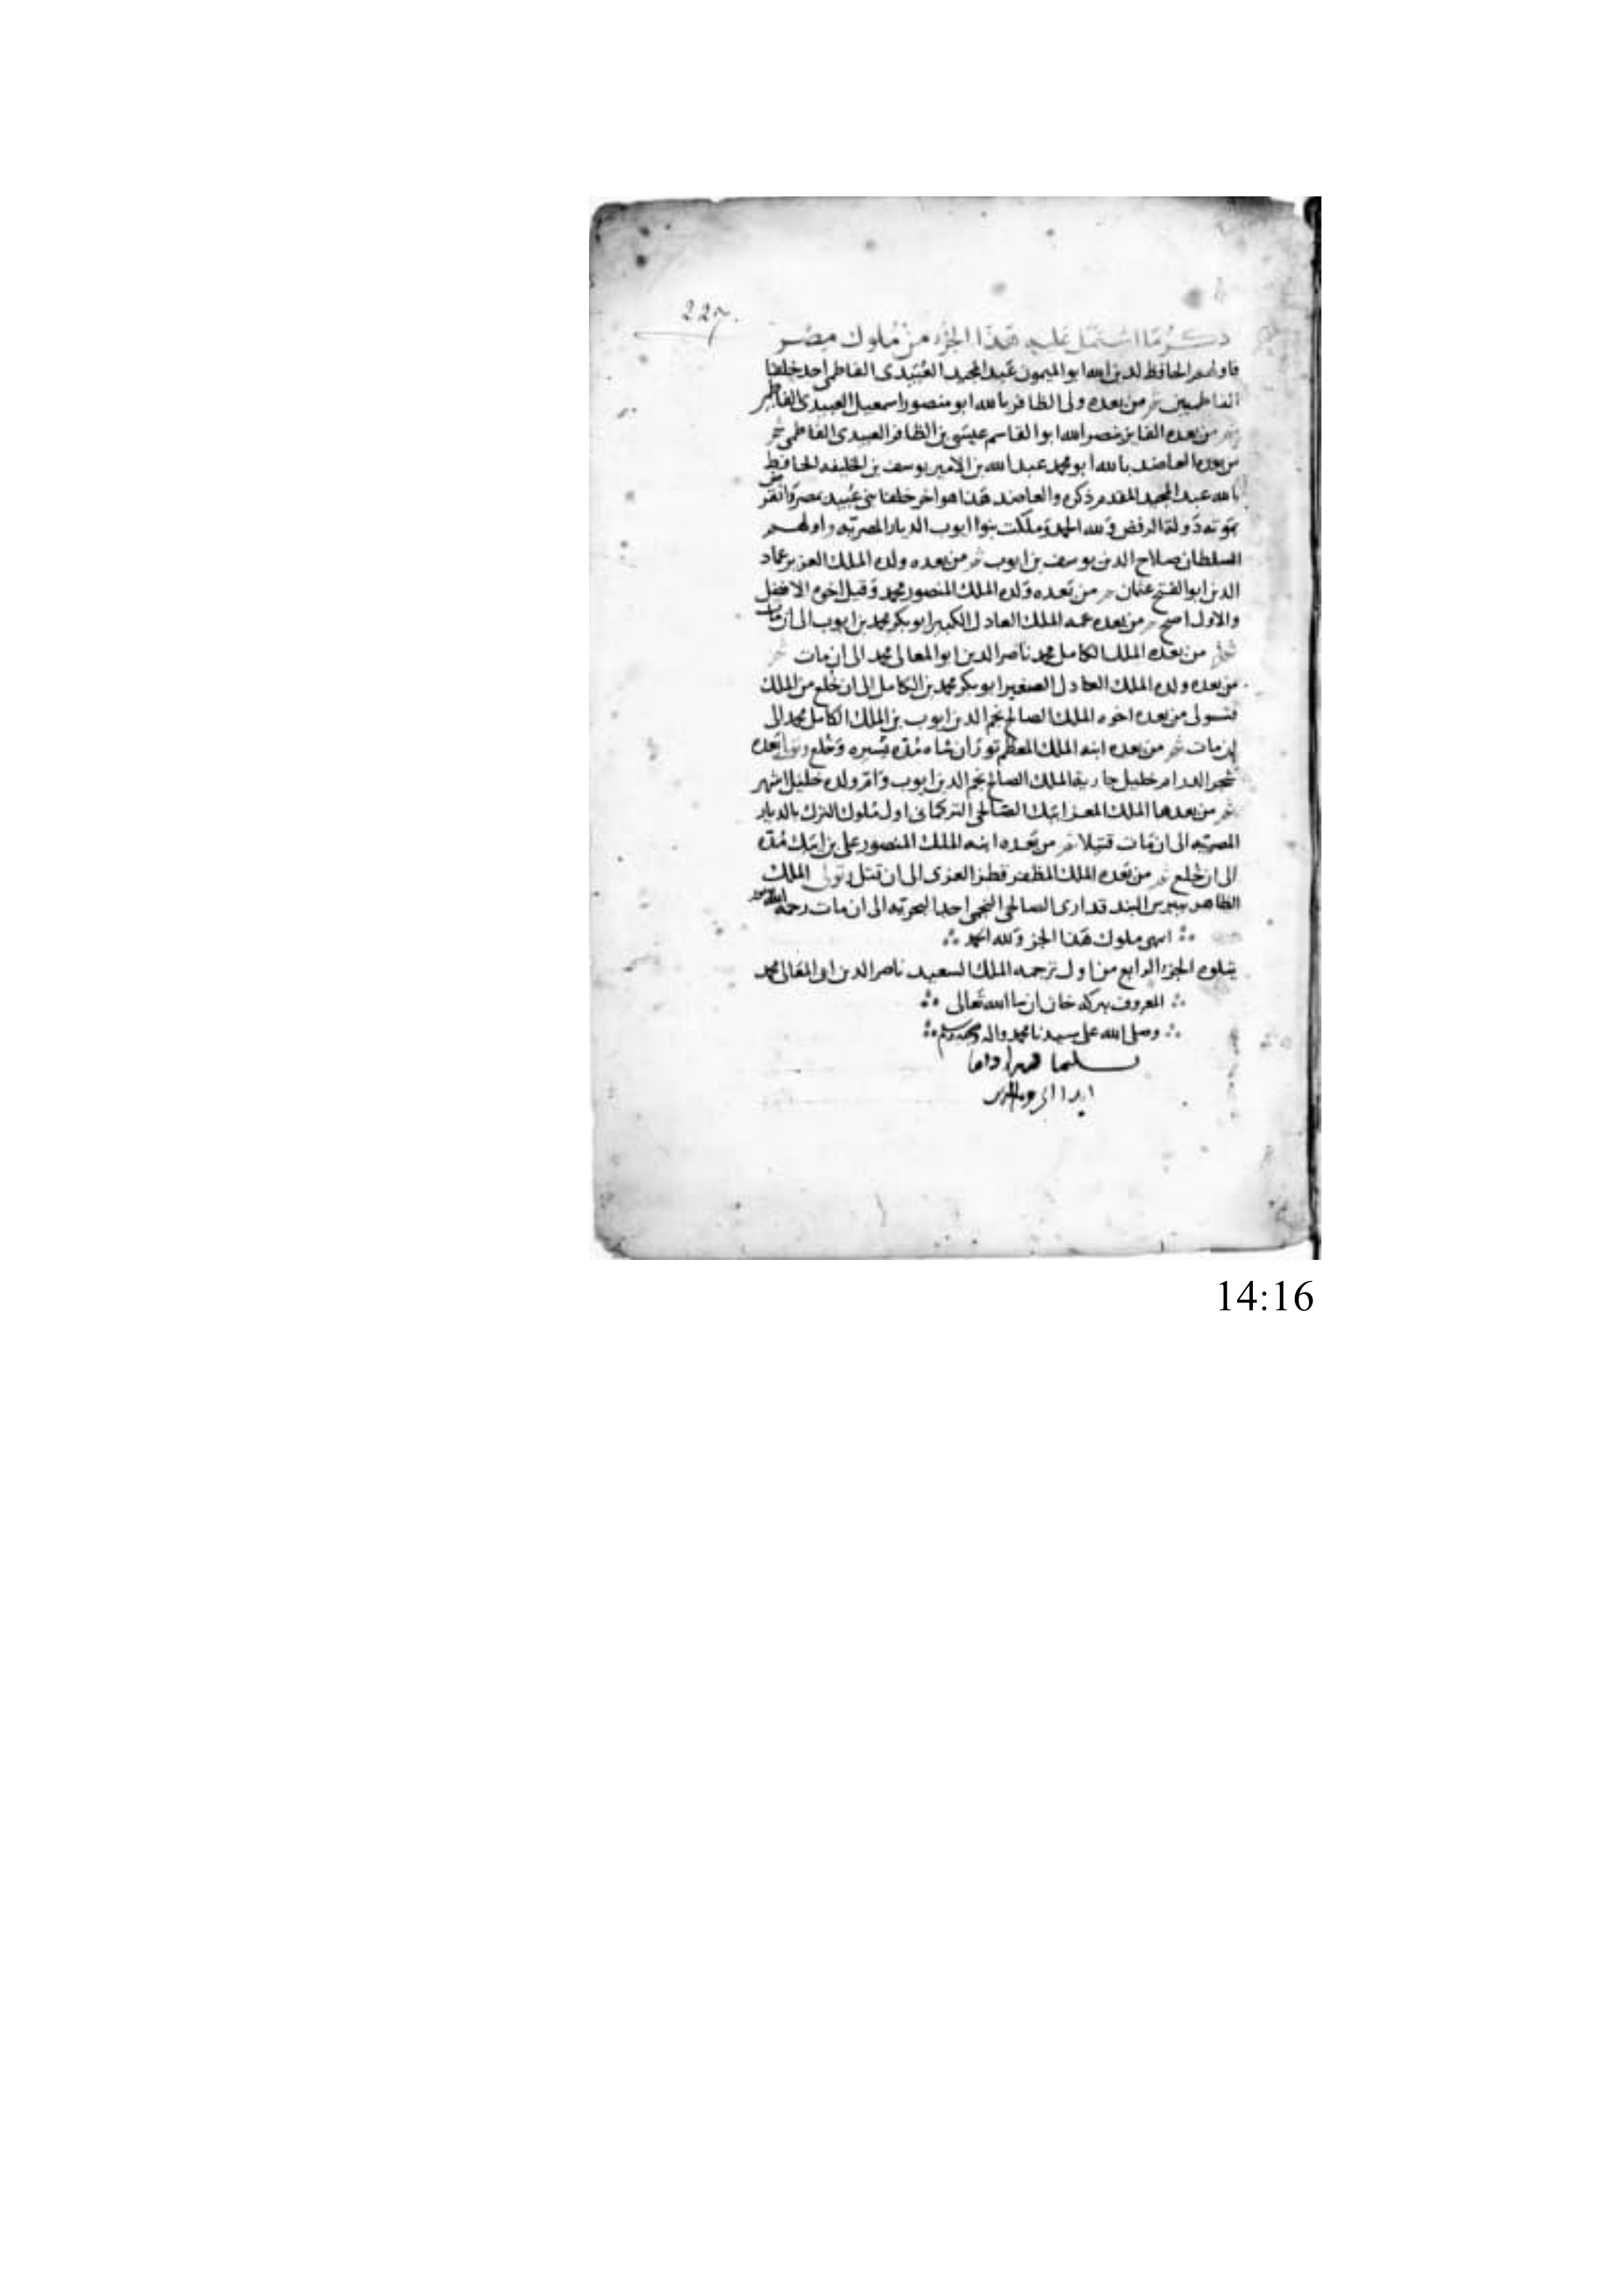 227.
ذكر ما اشتمل عليه هذا الجزء من ملوك مصر
فاولهم الحافظ لدين الله ابو الميمون عبد المجيد العبيدى الفاطمى احد خلفا
الفاطميين ثم من بعده ولى الظافر بالله ابو منصور اسمعيل العبيدى الفاطمى
ثم من بعده الفايز بنصر الله ابو القاسم عيسى بن الظافر العبيدى الفاطمى ثم
من بعده العاضد بالله ابو محمد عبد الله بن الامير يوسف بن الخليفه الحافظ
بالله عبد المجيد المقدم ذكره والعاضد هذا هو اخر خلفا بنى عبيد بمصر وانقرض
بموته دولة الرفض ولله الحمد وملكت بنوا ايوب الديار المصريه واولهم
السلطان صلاح الدين يوسف بن ايوب ثم من بعده ولده الملك العزيز عماد
الدين ابو الفتح عثمان ثم من بعده ولده الملك المنصور محمد وقيل اخوه الافضل
والاول اصح ثم من بعده عمه الملك العادل الكبير ابو بكر محمد بن ايوب الى ان مات
ثم من بعده الملك الكامل محمد ناصر الدين ابو المعالى محمد الى ان مات ثم
من بعده ولده الملك العادل الصغير ابو بكر محمد بن الكامل الى ان خلع من الملك
فتولى من بعده اخوه الملك الصالح نجم الدين ايوب بن الملك الكامل محمد الى
ان مات ثم من بعده ابنه الملك المعظم توران شاه مده يسيره وخلع وتولى بعده
شجر الدر ام خليل جارية الملك الصالح نجم الدين ايوب وام ولده خليل اشهر
ثم من بعدها الملك المعز ايبك الصالحى التركمانى اول ملوك الترك بالديار
المصريه الى ان مات قتيلا ثم من بعده ابنه الملك المنصور على بن ايبك مده
الى ان خلع ثم من بعده الملك المظفر قطز المعزى الى ان قتل وتولى الملك
الظاهر بيبرس البندقدارى الصالحى النجمى احد البحريه الى ان مات رحمه الله
انتهى ملوك هذا الجز ولله الحمد
يتلوه الجزء الرابع من اول ترجمه الملك السعيد ناصر الدين ابى المعالى محمد
المعروف ببركه خان ان شا الله تعالى
وصلى الله على سيدنا محمد واله وصحبه وسلم
تسليما كثيرا دائما
ابدا الى يوم الدين
14:16